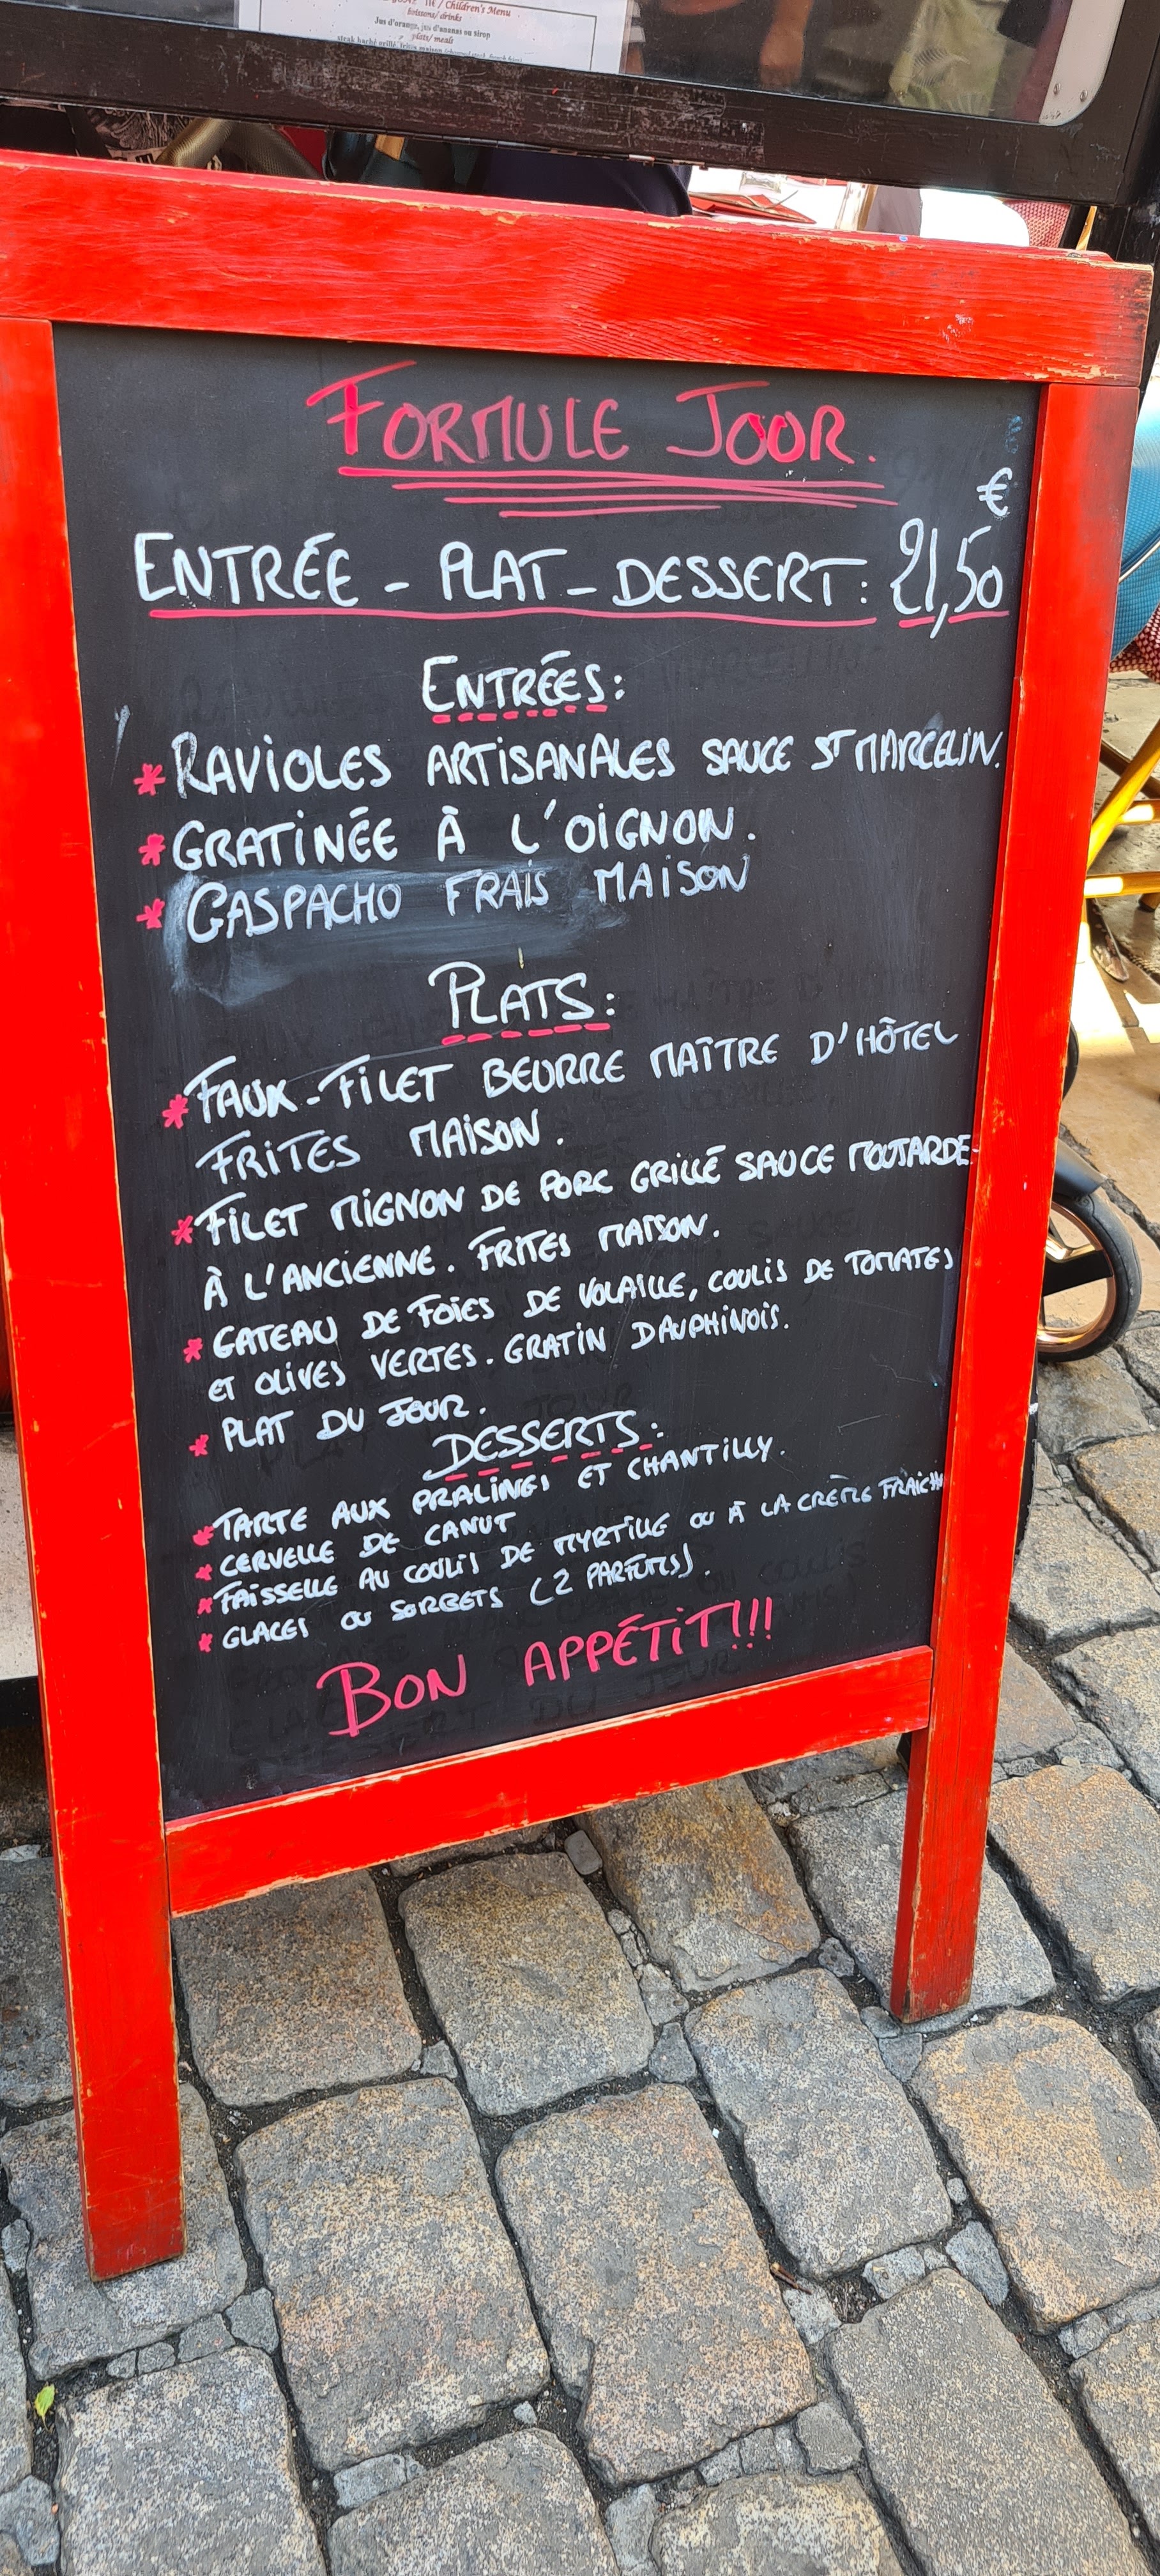 / Children's Menu
boissons/ drinks
Jus d'orange, jus d'ananas ou sirop
plats/ meals
steak haché grillé, frites maison
FORMULE JOUR.
€
ENTRÉE - PLAT - DESSERT: 21,50
ENTRÉES:
* RAVIOLES ARTISANALES SAUCE ST MARCELIN.
* GRATINÉE À L'OIGNON.
* GASPACHO FRAIS MAISON
PLATS:
* FAUX-FILET BEURRE MAÎTRE D'HÔTEL
FRITES MAISON.
* FILET MIGNON DE PORC GRILLÉ SAUCE MOUTARDE
À L'ANCIENNE. FRITES MAISON.
* GATEAU DE FOIES DE VOLAILLE, COULIS DE TOMATES
ET OLIVES VERTES. GRATIN DAUPHINOIS.
* PLAT DU JOUR.
DESSERTS:
* TARTE AUX PRALINES ET CHANTILLY.
* CERVELLE DE CANUT
* FAISSELLE AU COULIS DE MYRTILLE OU À LA CRÈME FRAICHE
* GLACES OU SORBETS (2 PARFUMS).
BON APPÉTIT!!!